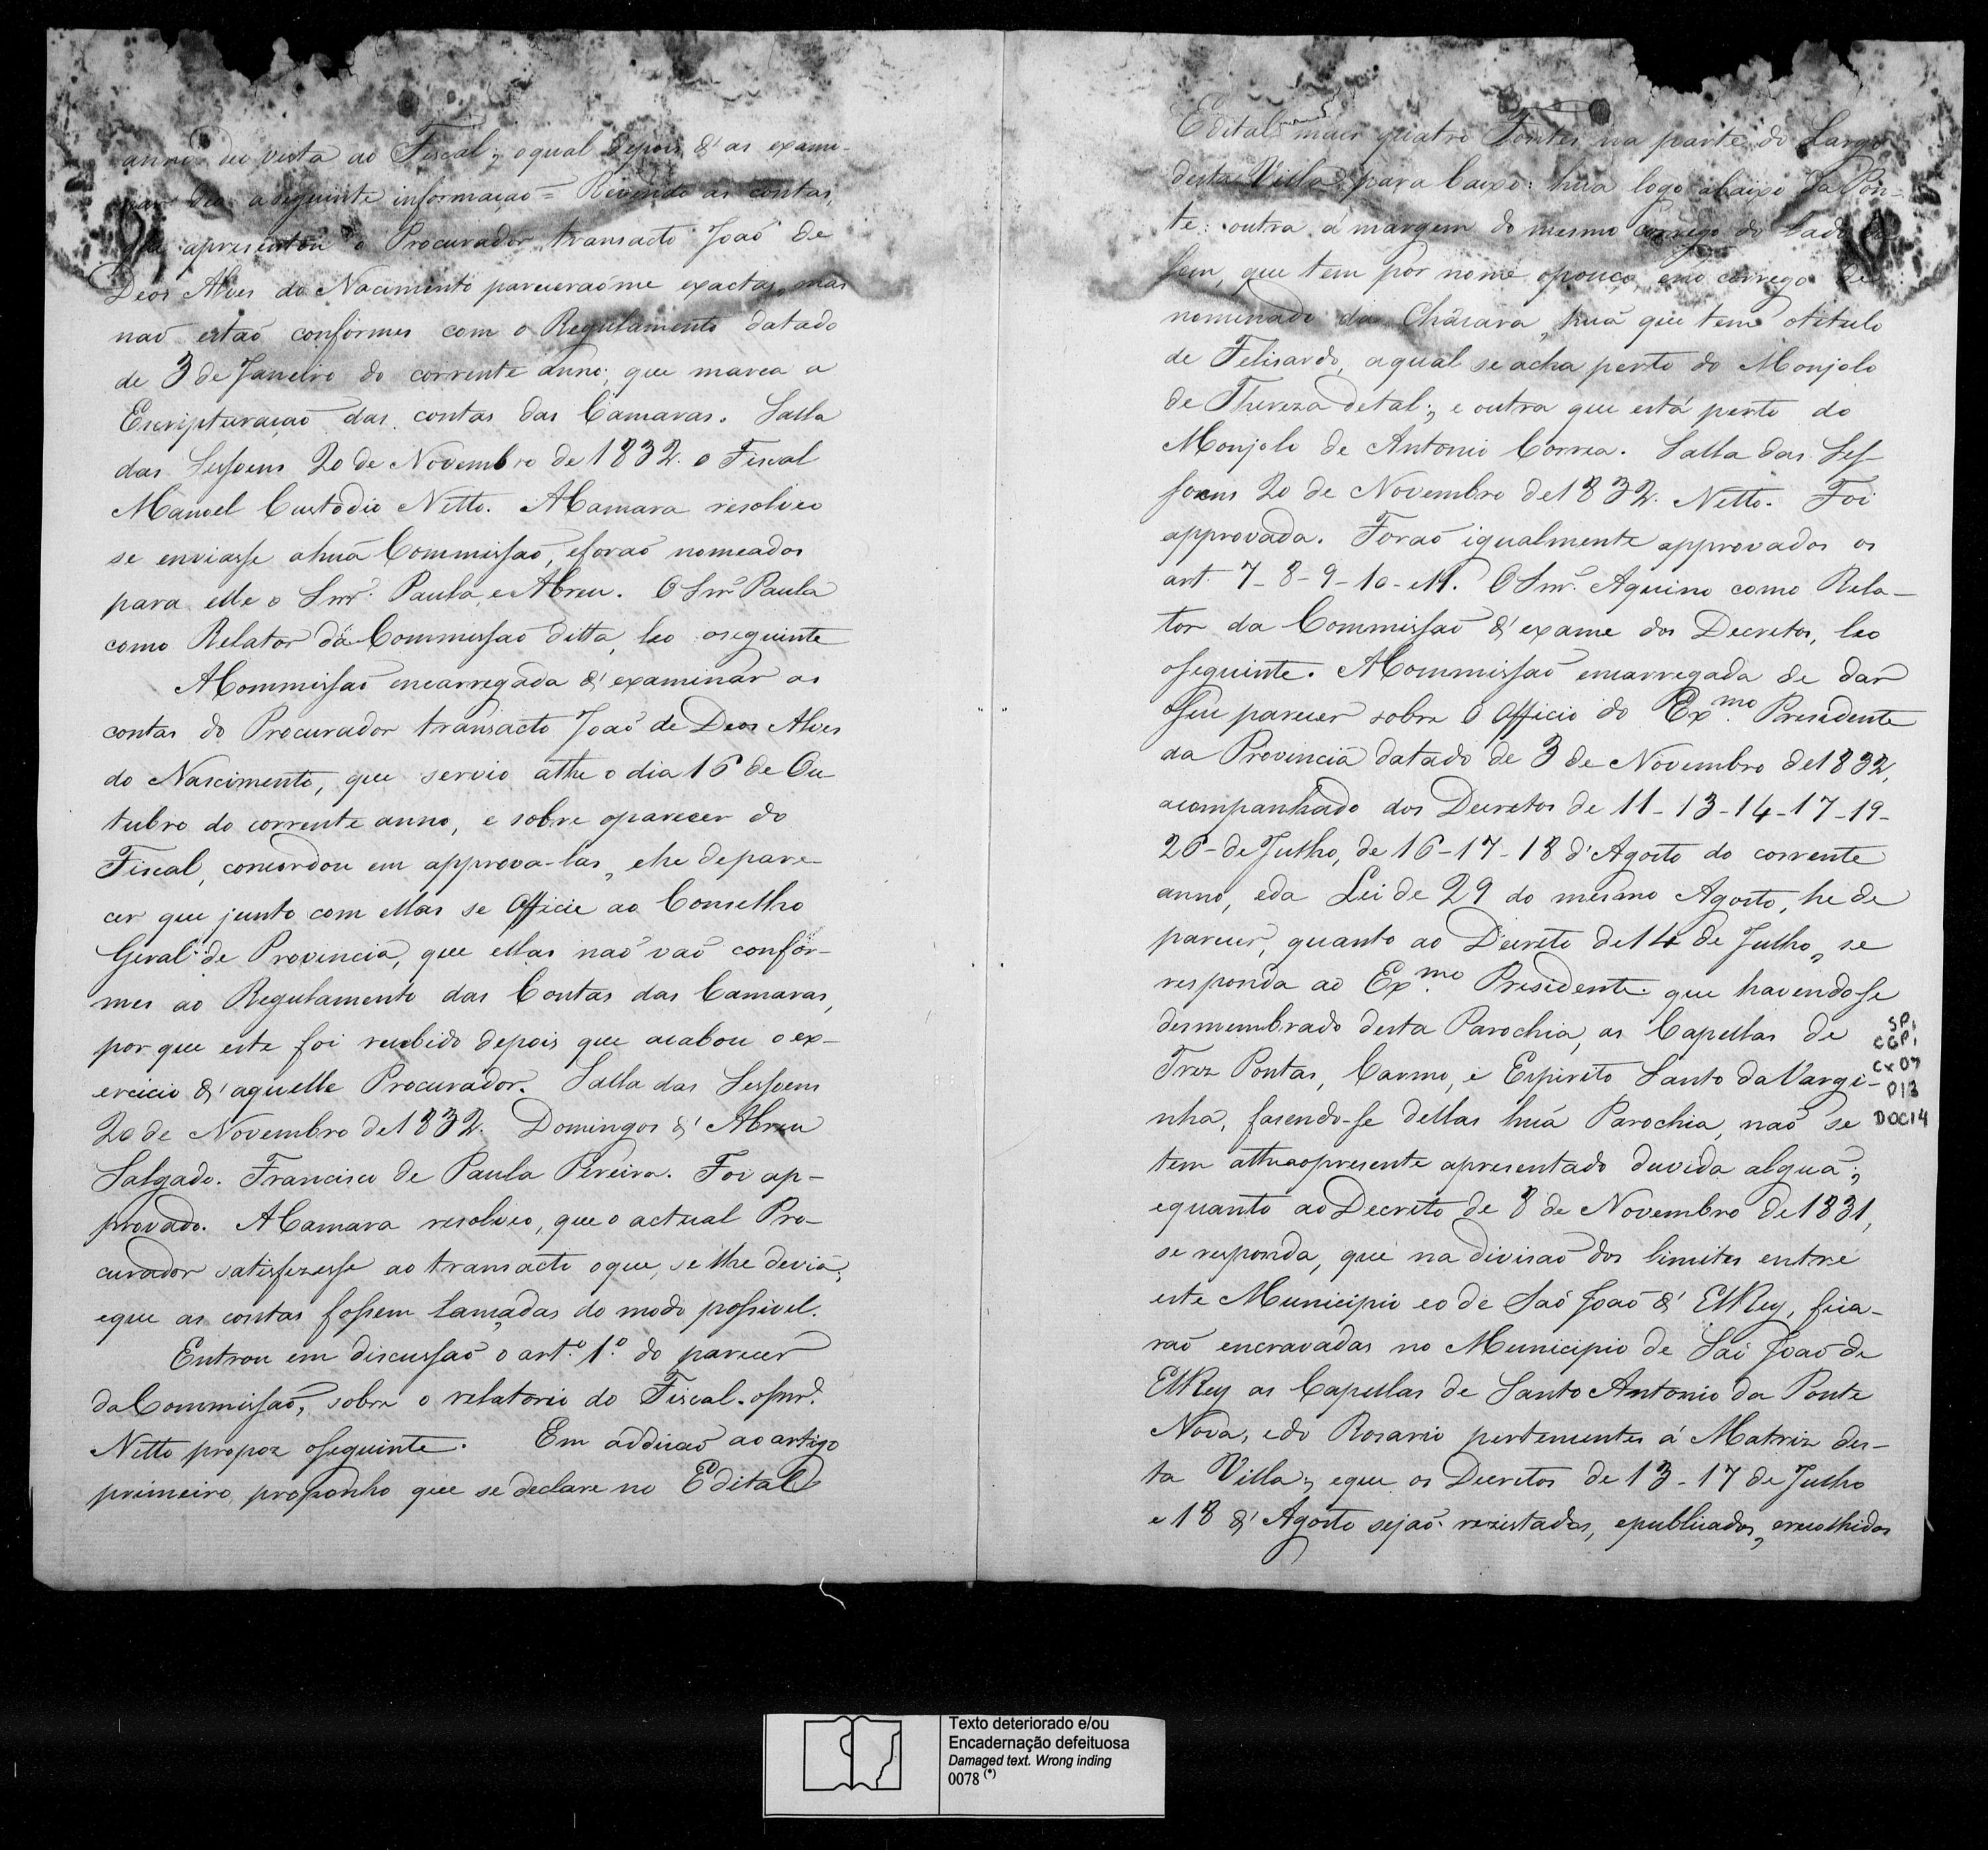 anno deu vista ao Fiscal; oqual depois d'as exami-
nar deu aseguinte informaçaõ = Revendo as contas,
que apresentou o Procurador transacto Joaõ de
Deos Alves do Nacimento pareceraõme exactas, mas
naõ estaõ conformes com o Regulamento datado
de 3 de Janeiro do corrente anno; que marca a
Escripturaçaõ das contas das Camaras. Salla
das Sessoens 20 de Novembro de 1832. o Fiscal
Manoel Custodio Netto. ACamara resolveo
se enviasse ahuã Commissaõ, eforaõ nomeados
para ella o Snr. Paula, e Abreu. O Snr Paula
como Relator da Commissaõ ditta, leo oseguinte
ACommissaõ encarregada d' examinar as
contas do Procurador transacto Joaõ de Deos Alves
do Nascimento, que servio athe o dia 16 de Ou
tubro do corrente anno, e sobre oparecer do
Fiscal, concordou em approva-las, ehe depare-
cer que junto com ellas se Officie ao Conselho
Geral de Provincia, que ellas naõ vaõ confor-
mes ao Regulamento das Contas das Camaras,
por que este foi recebido depois que acabou o ex-
ercicio d' aquelle Procurador. Salla das Sessoens
20 de Novembro de 1832. Domingos d' Abreu
Salgado. Francisco de Paula Pereira. Foi ap-
provado. ACamara resolveo, que o actual Pro-
curador satisfezesse ao transacto oque, se lhe devia,
eque as contas fossem lançadas do modo possivel.
Entrou em discussaõ o art.º 1.º do parecer
da Commissaõ, sobre o relatorio do Fiscal. oSnr.
Netto propoz oseguinte. Em addiçaõ ao artigo
primeiro, proponho que se declare no Edital
Edital mais quatro Fontes na parte do Largo
desta Villa para baixo: huã logo abaixo da Pon-
te: outra á margem do mesmo corrego do lado
que tem por nome opouço, eno corrego de
nominado da Chácara, huã que tem otitulo
de Felisardo, aqual se acha perto do Monjolo
de Thereza detal; e outra que está perto do
Monjolo de Antonio Correa. Salla das Ses-
soens 20 de Novembro de 1832. Netto. Foi
approvada. Foraõ igualmente approvados os
art. 7-8-9-10-e11. O Snr. Aquino como Rela-
tor da Commissaõ d' exame dos Decretos, leo
oseguinte. ACommissaõ encarregada de dar
oseu parecer sobre o Officio do Exmo. Presidente
da Provincia datado de 3 de Novembro de 1832,
acompanhado dos Decretos de 11-13-14-17-19-
26-de Julho, de 16-17-18 d'Agosto do corrente
anno, eda Lei de 29 do mesmo Agosto, he de
parecer, quanto ao Decreto de 14 de Julho, se
responda ao Exmo. Presidente que havendo-se
desmembrado desta Parochia, as Capellas de
Trez Pontas, Carmo, e Espirito Santo da Vargi-
nha, fasendo-se dellas huã Parochia, naõ se
tem atheaopresente apresentado duvida alguã;
equanto ao Decreto de 8 de Novembro de 1831,
se responda, que na divisaõ dos limites entre
este Municipio eo de Saõ Joaõ d' ElRey, fica-
raõ encravadas no Municipio de Saõ Joaõ de
ElRey as Capellas de Santo Antonio da Ponte
Nova, edo Rosario pertencentes á Matriz des-
ta Villa; eque os Decretos de 13-17 de Julho
e 18 d' Agosto sejaõ rezistados, epublicados, erecolhidos
SP1
CGP1
CX07
013
DOC14
Texto deteriorado e/ou
Encadernação defeituosa
Damaged text. Wrong inding
0078 (*)